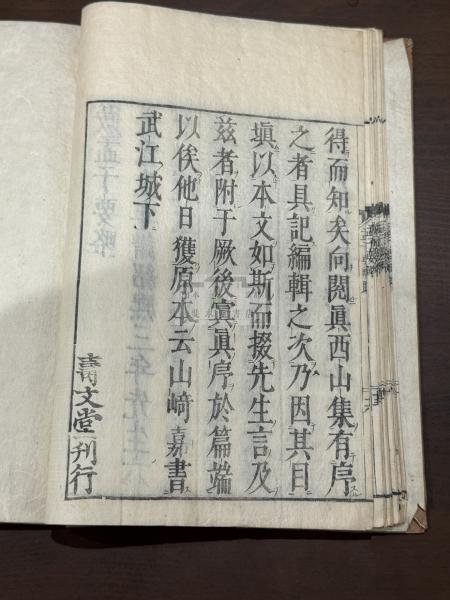 得而知矣向閲眞西山集有序
之者具記編輯之次乃因其目
塡以本文如斯而掇先生言及
兹者附于厥後寘眞序於篇端
以俟他日獲原本云山﨑嘉書
武江城下
壽文堂刊行